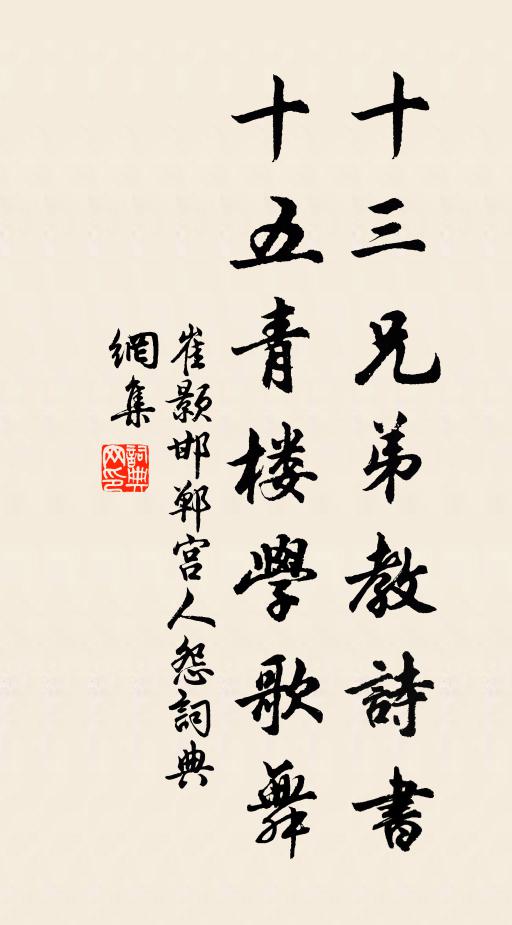 十三兄弟教詩書
十五青楼學歌舞
崔顥邯鄲宮人怨詞典
網集
詞典
网印